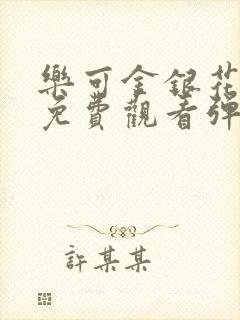 樂可金銀花
免費觀看彈
許某某